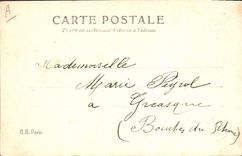 A
CARTE POSTALE
Ce côté est exclusivement réservé à l'adresse
Mademoiselle
Marie Peyrol
à Greasque
(Bouches du Rhône)
G.B. Paris